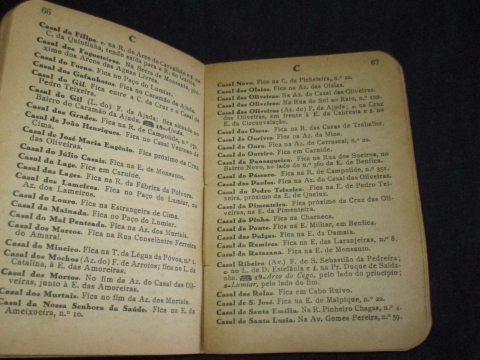 66
C
Casal do Filipe. e. na R. do Arco do Carvalhão e s. na
C. da Quintinha, tendo saída para a R. do
Casal dos Fogueteiros. Na Serra de Monsanto,
ximo dos Arcos das Águas Livres.
Casal do Forno. Fica no Paço do Lumiar.
Casal dos Gafanhotos. Fica na Calçada da Ajuda.
Casal do Gil. Fica entre a C. da Cruz e a
Pedro Teixeira.
Casal do Gil (L. do) F. da Ajuda; fica situado no
Bairro do Caramão da Ajuda.
Casal das Grades. Fica na R. de Campolide,
Casal de João Henriques. Fica no Casal Ventoso de
Cima.
Casal de José Maria Eugénia. Fica próximo da Cruz
das Oliveiras.
Casal de Júlio Cassis. Fica na E. de Monsanto.
Casal da Lage. Fica em Carnide.
Casal das Lages. Fica na R. da Fábrica da Pólvora.
Casal do Lameiro. Fica no Paço do Lumiar,
Az. dos Lameiros.
Casal do Louro. Fica na Estrangeira de Cima.
Casal da Mainada. Fica no Paço do Lumiar.
Casal do Mal Penteado. Fica na Az. dos Mortais.
Casal dos Marcos. Fica na Rua Conselheiro Ferreira
do Amaral.
Casal do Mineiro. Fica na T. da Légua da Póvoa, n.º
Casal dos Mochos (Az. do) F. de Arroios; fica no L. da
Catalina, à E. das Amoreiras.
Casal dos Mortos. No fim da Az. do Casal das Oli-
veiras, junto à E. das Amoreiras.
Casal dos Mortais. Fica no fim da Az. dos Mortais.
Casal da Nossa Senhora da Saúde. Fica na E. da
Ameixoeira, n.º 10.
C
67
Casal Novo. Fica na C. da Picheleira, n.º
Casal dos Olaias. Fica na Az. das Olaias.
Casal das Oliveiras. Na Az. do Casal das Oliveiras.
Casal das Oliveiras. Na Rua do Sol ao Rato, n.º
Casal das Oliveiras (Az. do) F. da Ajuda; e. na Cruz
das Oliveiras, em frente à E. da Cabrosta e s. na
E. da Circunvalação.
Casal do Ouro. Fica na R. das Casas de Trabalho.
Casal do Outeiro. Fica na Az. da Mina.
Casal do Ouro. Fica na Az. do Carrascal, n.º 20.
Casal do Outeiro. Fica em Carnide.
Casal do Panasqueiro. Fica na Rua dos Sueiros, no
Bairro Novo, ao lado do n.º 360 da E. de Benfica.
Casal do Pássaro. Fica na R. de Campolide, n.º 352.
Casal dos Paulos. Fica na Az. do Casal das Oliveiras.
Casal do Pedro Teixeira. Fica na E. de Pedro Tei-
xeira, próximo da E. de Queluz.
Casal da Pimenteira. Fica próximo da Cruz das Oli-
veiras, na E. da Pimenteira.
Casal do Pinho. Fica na Charneca.
Casal da Ponte. Fica na E. Militar, em Benfica.
Casal das Pulgas. Fica na E. da Damaia.
Casal do Ramires. Fica na E. das Laranjeiras, n.º 8.
Casal do Ratazana. Fica na E. de Monsanto.
Casal Ribeiro (Av.) F. de S. Sebastião da Pedreira;
e. no L. de D. Estefânia e s. na Pr. Duque de Salda-
nha. 19—Arco do Cego, pelo lado do princípio;
2—Lumiar, pelo lado do fim.
Casal das Rolas. Fica em Cabo Ruivo.
Casal de S. José. Fica na E. de Malpique, n.º 22.
Casal de Santa Emília. Na R. Pinheiro Chagas, n.º 4.
Casal de Santa Luzia. Na Av. Gomes Pereira, n.º 59.